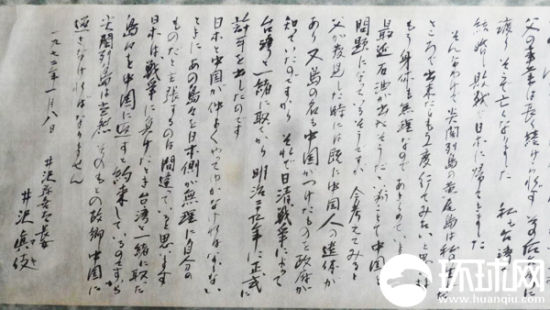 父の事業は長く続けられず その后に
疲れそして亡くなりました 私も台湾で
結婚し敗戦で日本に帰って来ました
そんなわけで尖閣列島の黄尾島は私の生れた
ところで出来たらもう一度行ってみたいと思います
もう身体も無理なのであきらめています
最近石油が出るそうだということで中国と
問題になっているそうですが 今考えてみると
父が発見した時には既に中国人の遺体が
あり 又島の名も中国がつけたものと政府が
知っていたのですから それで日清戦争によって
台湾と一緒に取ってから明治二九年に正式に
許可を出したのです
日本と中国が仲よくして行かなければならない
ときにあの島々を日本側が無理に自分の
ものだと主張するのは間違っていると思います
日本は戦争に負けたとき台湾と一緒に取った
島々を中国に返すと約束しているのですから
尖閣列島は当然そのもとの故郷中国に
返さなければなりません
一九七二年一月八日
井沢弥喜太長女
井沢真伎
环球网
www.huanqiu.com